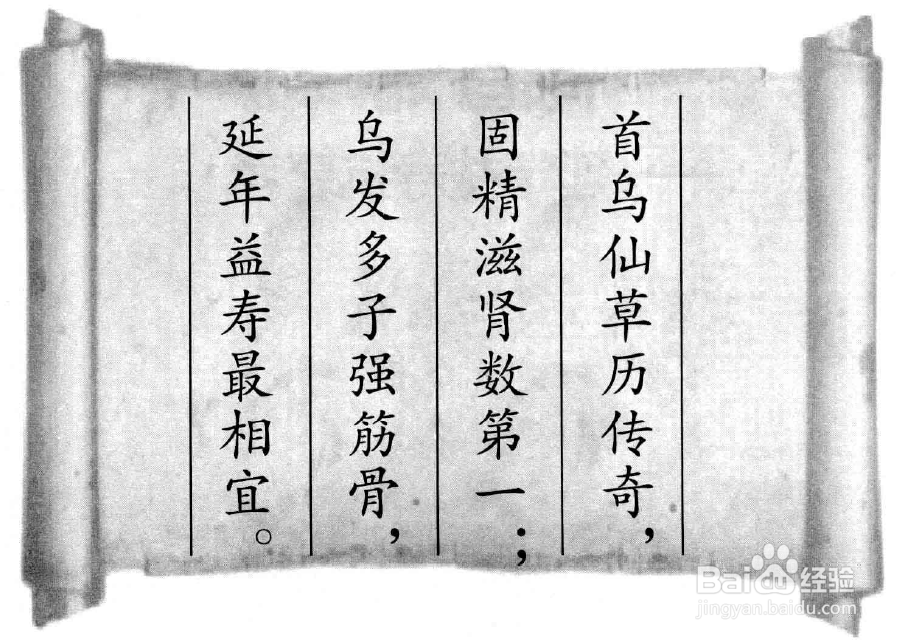 首乌仙草历传奇，
固精滋肾数第一；
乌发多子强筋骨，
延年益寿最相宜。
Baidu经验
jingyan.baidu.com